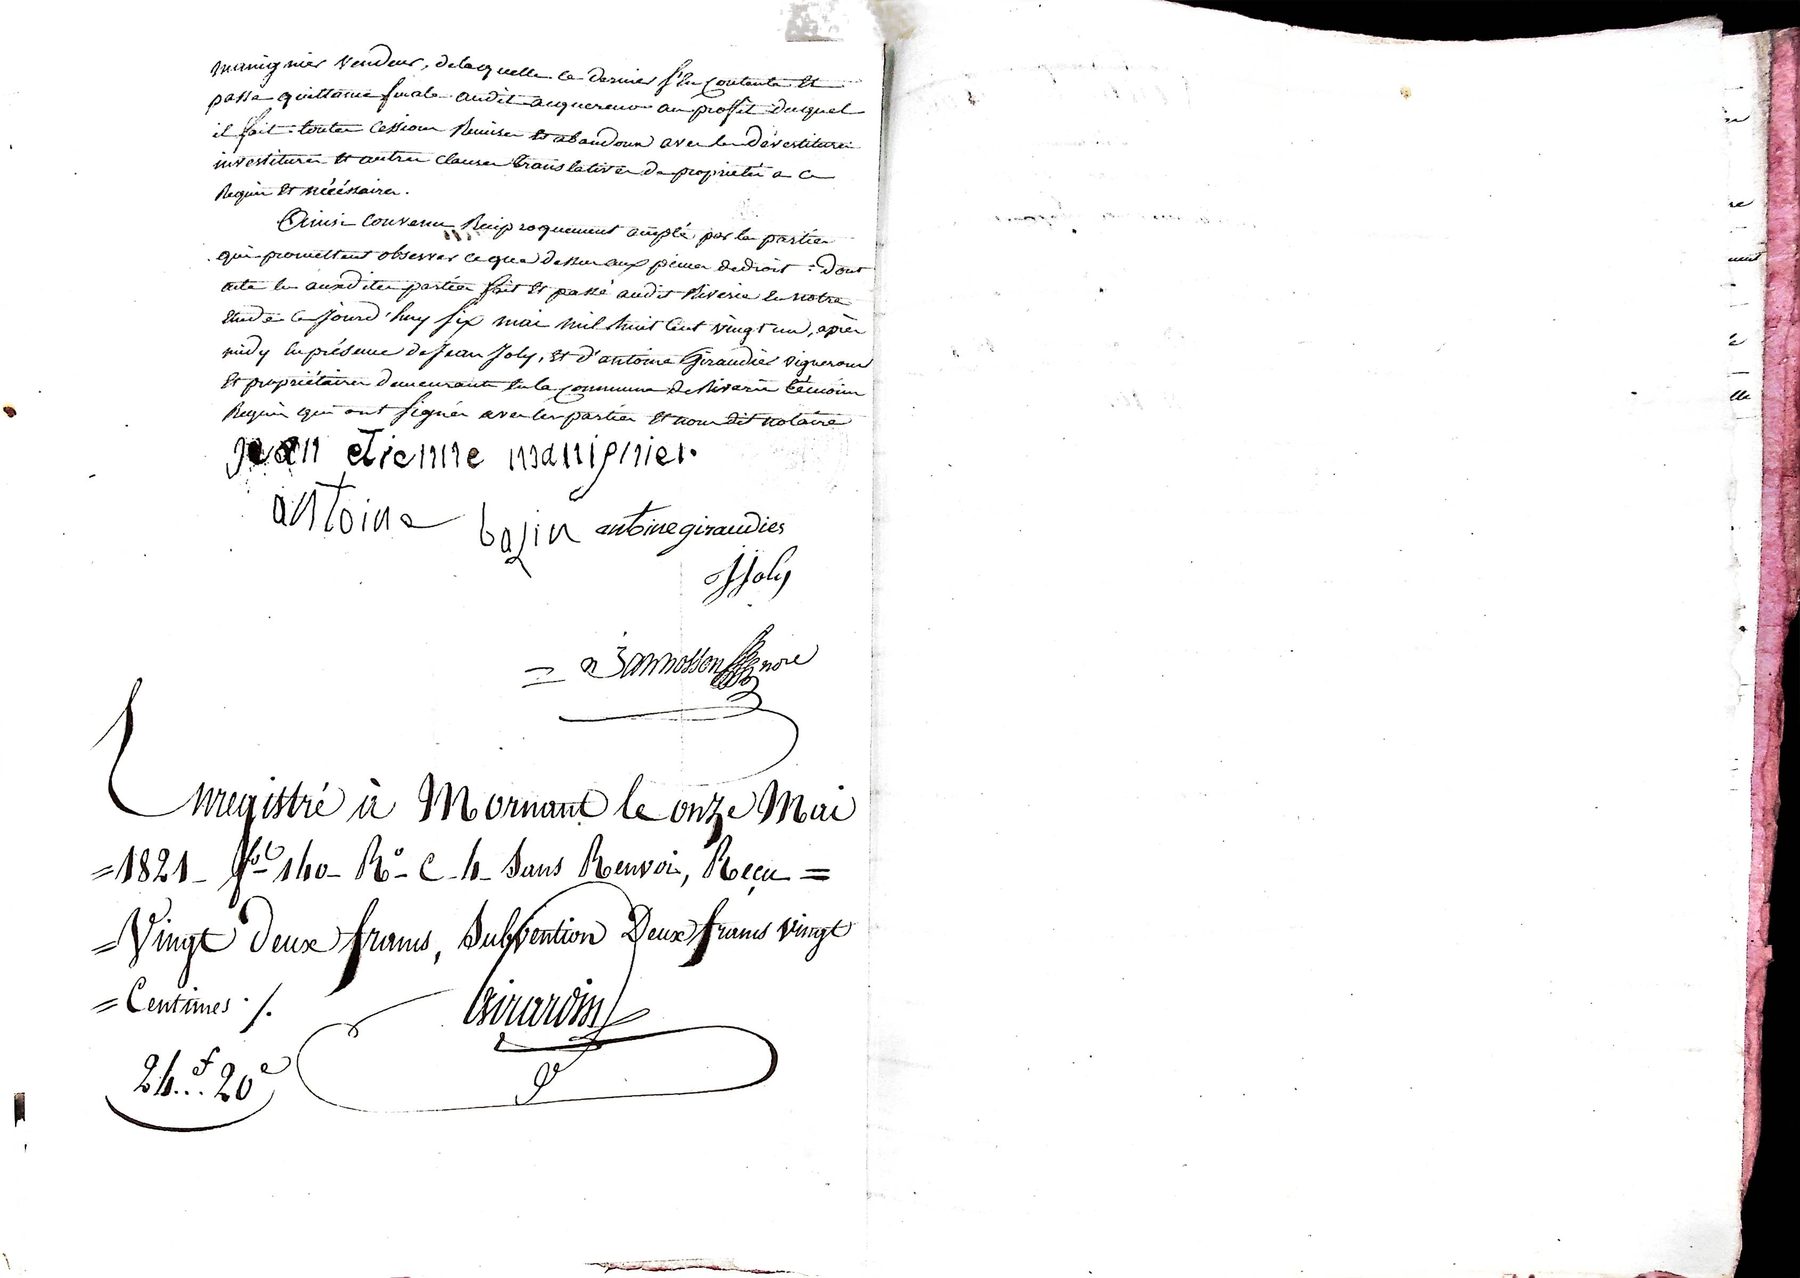 manignier vendeur, de laquelle ce dernier s'en contente et
passe quittance finale audit acquereur au proffit duquel
il fait toutes cessions remises et abandonn avec les dévestitures
investitures et autres clauses translatives de propriétés a ce
Requis et nécéssaires.
Ainsi convenu Réciproquement accepté par les parties
qui promettent observer ce que dessus aux peines de droit : Dont
acte les auxdites parties fait et passé audit Riverie en notre
étude ce jourd'huy six mai mil huit cent vingt un, après
midy en présence de Jean Joly, et d'antoine Giraudier vignerons
et propriétaires demeurants en la commune de Riverie témoins
Requis qui ont signés avec les parties et nous dit notaire
jean etienne manignier.
antoine bazin antoine giraudier
JJoly
nore
Enregistré à Mornant le onze Mai
=1821_ fol 140_ Ro_ C_4_ Sans Renvoi, Reçu =
=Vingt deux francs, Subvention Deux francs vingt
=Centimes ./.
Girardin
24.f.. 20c